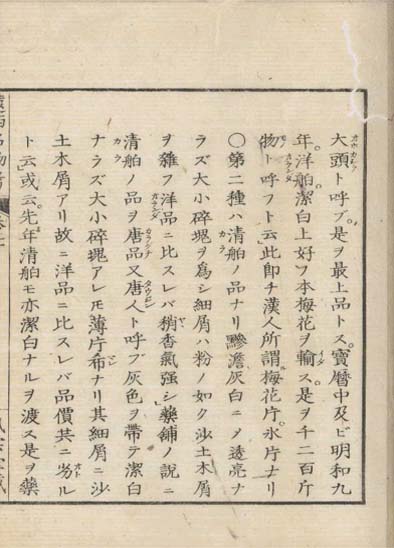 大頭ト呼ブ。是ヲ最上品トス。寳暦中及ビ明和九
年。洋舶潔白上好ノ本梅花ヲ輸ス。是ヲ千二百斤
物ト呼フト云」此卽チ漢人所謂梅花片。氷片ナリ
〇第二種ハ清舶ノ品ナリ黲澹灰白ニ乄透亮ナ
ラズ大小碎塊ヲ爲シ細屑ハ粉ノ如ク沙土木屑
ヲ雜フ洋品ニ比スレバ稍香氣强シ」藥舗ノ說ニ
清舶ノ品ヲ唐品又唐人ト呼ブ灰色ヲ帶テ潔白
ナラズ大小碎塊アレ𪜈薄片希ナリ其細屑ニ沙
土木屑アリ故ニ洋品ニ比スレバ品價共ニ劣ル
ト云」或云。先年清舶モ亦潔白ナルヲ渡ス是ヲ藥